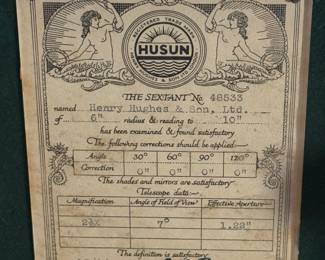 REGISTERED TRADE MARK
HUSUN
HENRY HUGHES & SON LTD
THE SEXTANT No 48533
named Henry Hughes & Son, Ltd.
of 6" radius & reading to 10"
has been examined & found satisfactory
The following corrections should be applied:
Angle 30° 60° 90° 120°
Correction 0" 0" 0" 0"
The shades and mirrors are satisfactory
Telescope data:
Magnification Angle of Field of View Effective Aperture
7° 1.22"
The definition is satisfactory